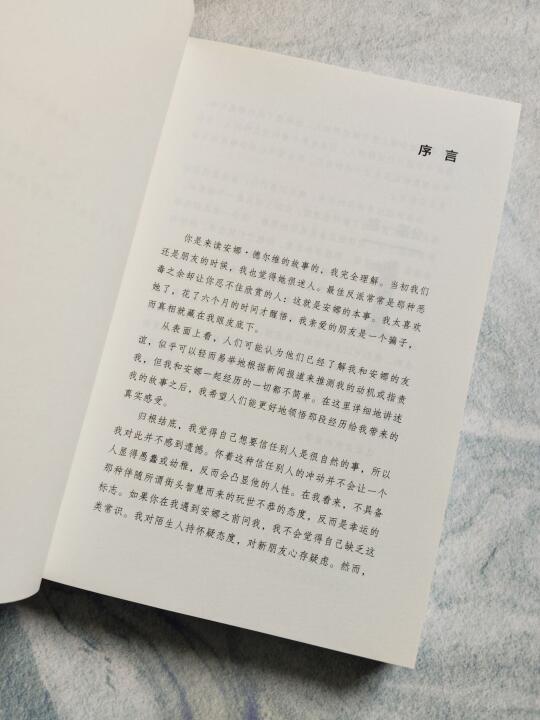 序 言
你是来读安娜·德尔维的故事的，我完全理解。当初我们
还是朋友的时候，我也觉得她很迷人。最佳反派常常是那种恶
毒之余却让你忍不住欣赏的人：这就是安娜的本事。我太喜欢
她了，花了六个月的时间才醒悟，我亲爱的朋友是一个骗子，
而真相就藏在我眼皮底下。
从表面上看，人们可能认为他们已经了解我和安娜的友
谊，似乎可以轻而易举地根据新闻报道来推测我的动机或指责
我，但我和安娜一起经历的一切都不简单。在这里详细地讲述
我的故事之后，我希望人们能更好地领悟那段经历给我带来的
真实感受。
归根结底，我觉得自己想要信任别人是很自然的事，所以
我对此并不感到遗憾。怀着这种信任别人的冲动并不会让一个
人显得愚蠢或幼稚，反而会凸显他的人性。在我看来，不具备
那种伴随所谓街头智慧而来的玩世不恭的态度，反而是幸运的
标志。如果你在我遇到安娜之前问我，我不会觉得自己缺乏这
类常识。我对陌生人持怀疑态度，对新朋友心存疑虑。然而，